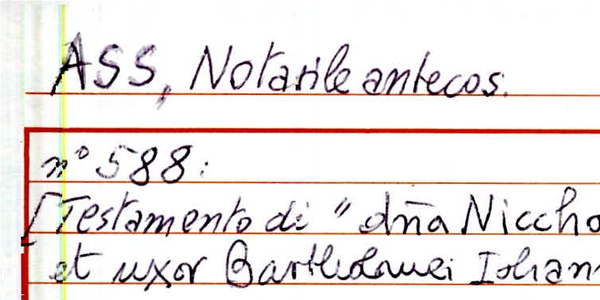 ASS, Notarile antecos.
n° 588:
[Testamento di "dña Niccho
et uxor Bartholomei Iohan